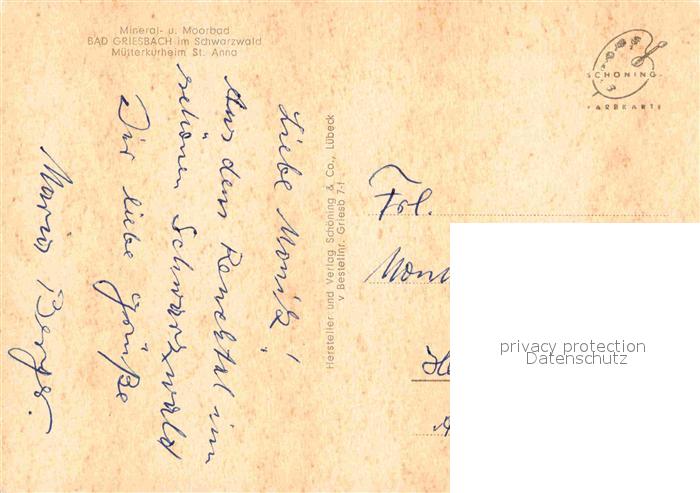 Mineral- u. Moorbad
BAD GRIESBACH im Schwarzwald
Mütterkurheim St. Anna
SCHÖNING
FARBKARTE
Liebe Monika!
Aus dem Renchtal im
schönen Schwarzwald
Dir liebe Grüße
Maria Berger.
Hersteller und Verlag Schöning & Co., Lübeck
v Bestellnr. Griesb 7-1
Frl.
privacy protection
Datenschutz